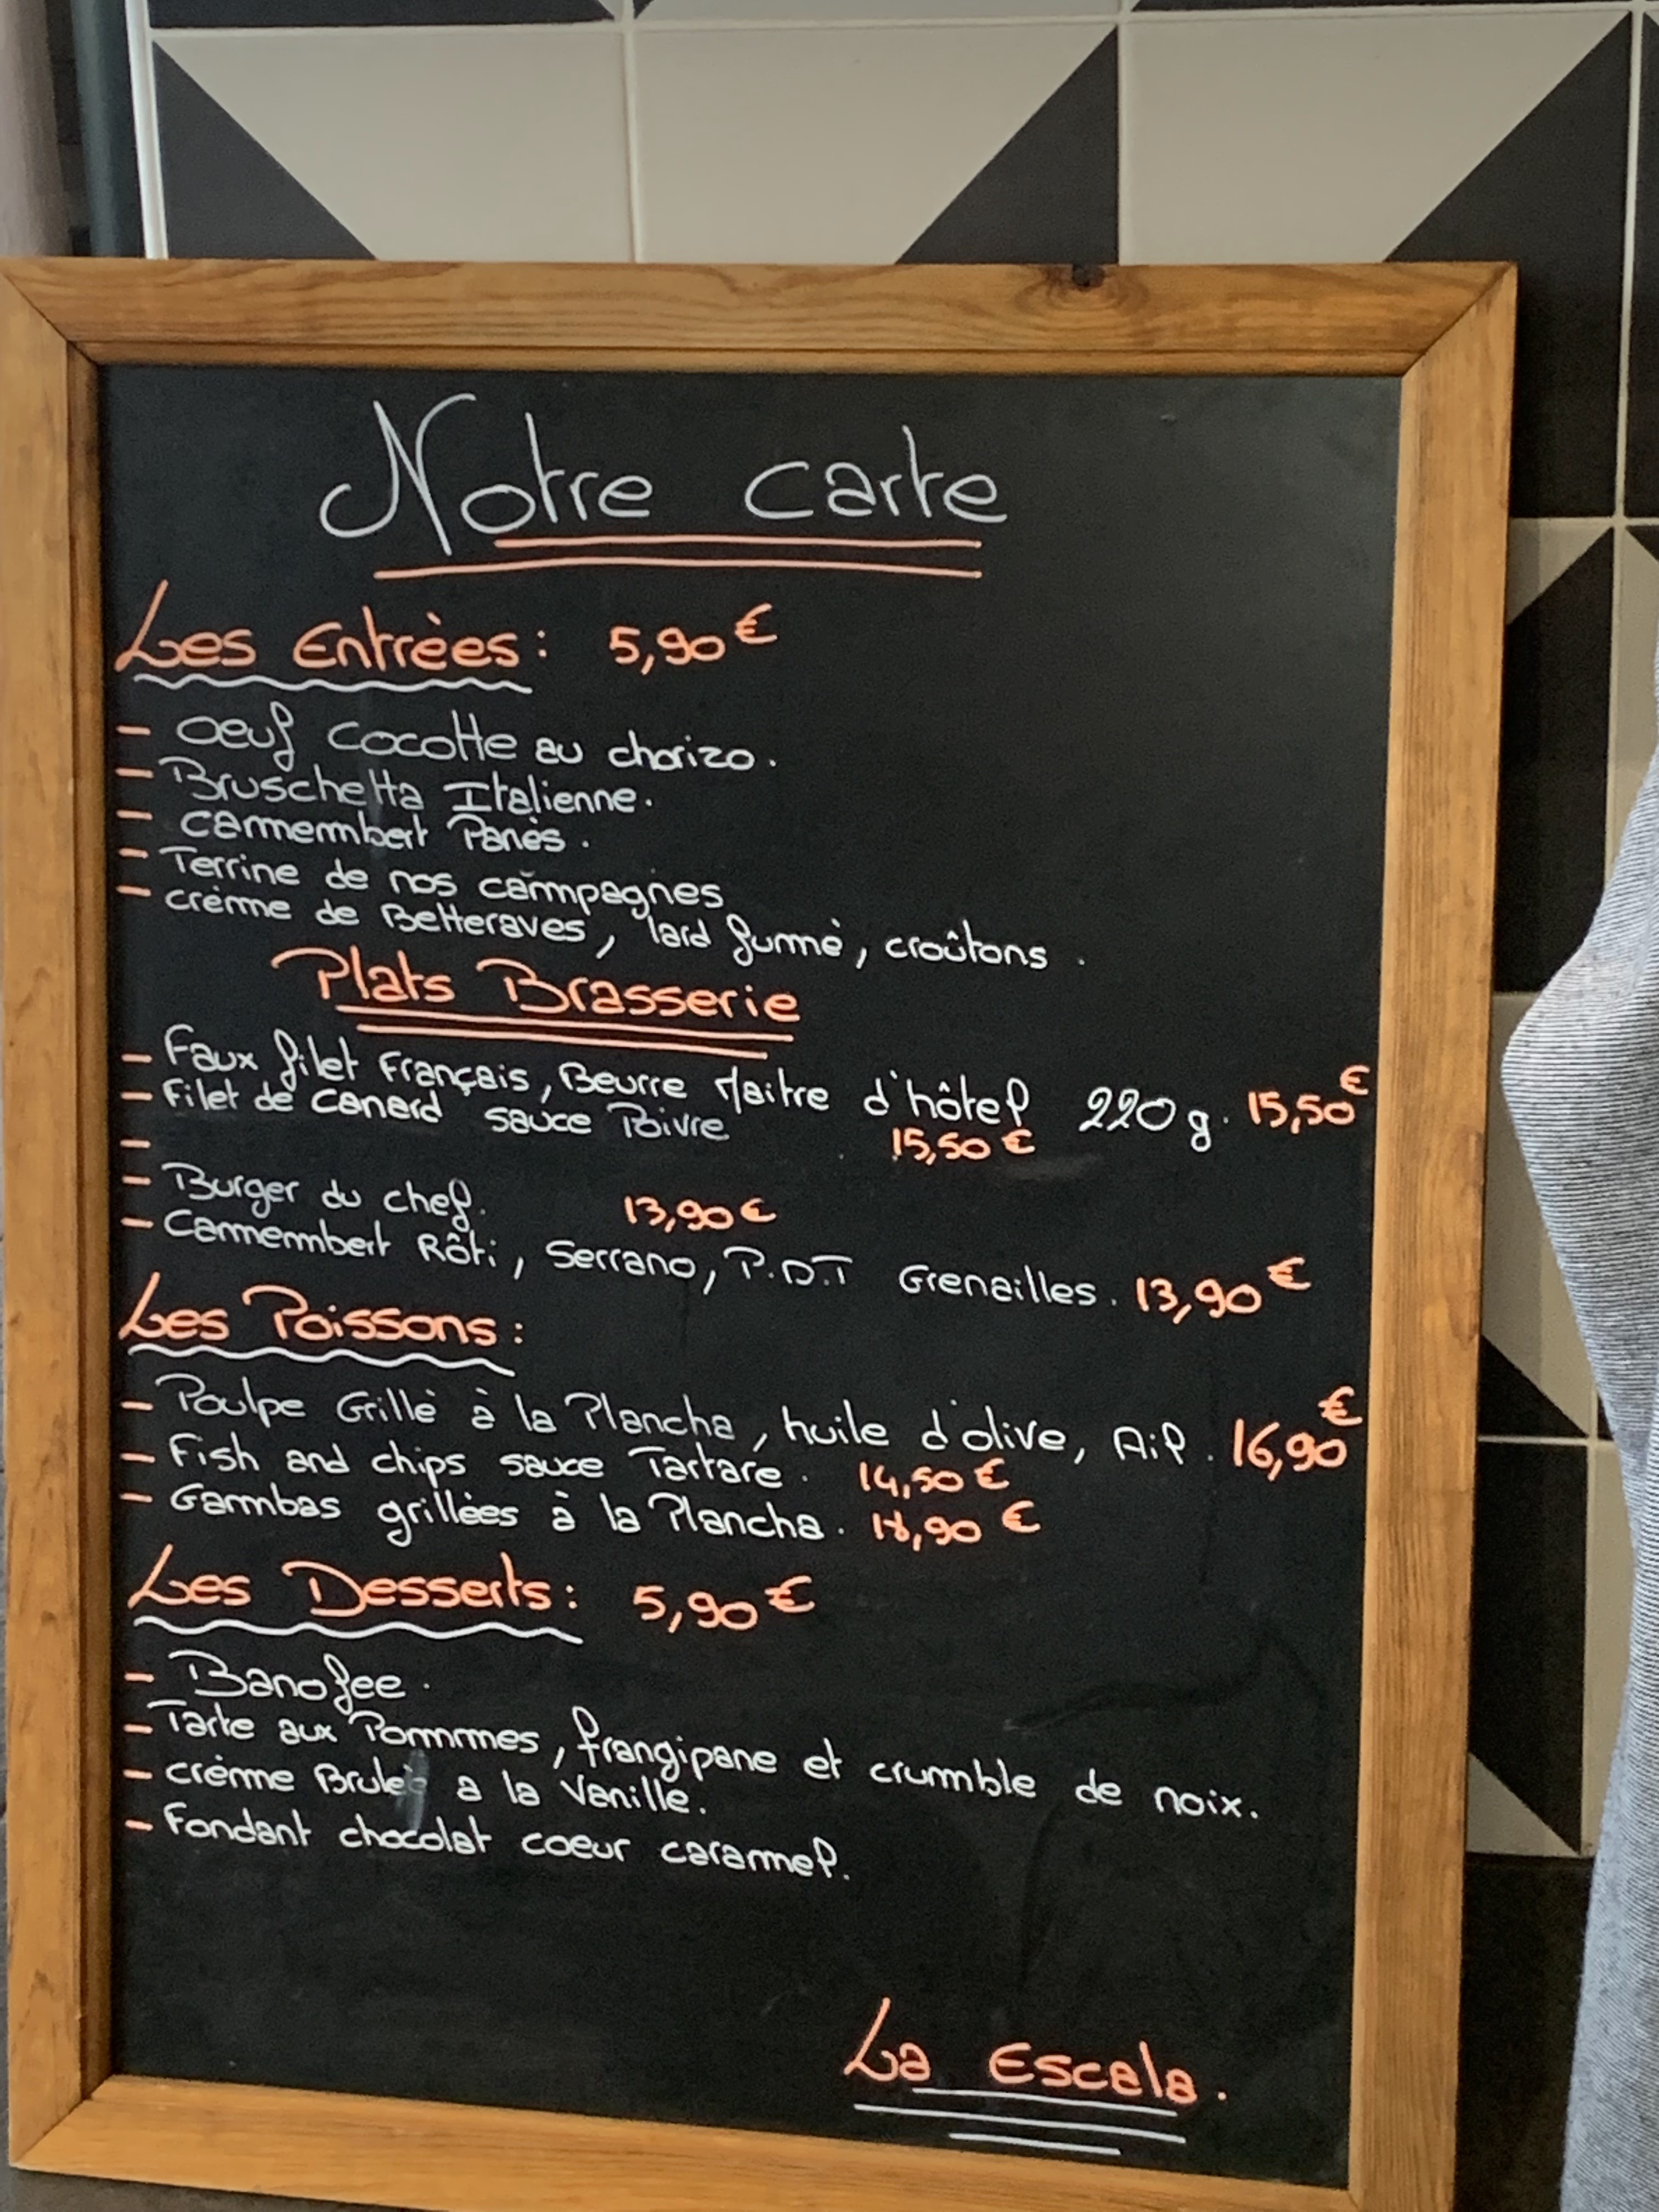 Notre carte
Les Entrèes : 5,90€
- oeuf cocotte au chorizo.
- Bruschetta Italienne.
- camembert Panès.
- Terrine de nos campagnes
- crème de Betteraves, lard fumè, croûtons.
Plats Brasserie
- Faux filet Français, Beurre Maitre d'hôtel 220g. 15,50€
- Filet de canard sauce Poivre 15,50€
-
- Burger du chef. 13,90€
- Camembert Rôti, Serrano, P.D.T Grenailles. 13,90€
Les Poissons :
- Poulpe Grillè à la Plancha, huile d'olive, Ail. 16,90€
- Fish and chips sauce Tartare. 14,50€
- Gambas grillèes à la Plancha. ,90€
Les Desserts : 5,90€
- Banofee.
- Tarte aux Pommes, frangipane et crumble de noix.
- crème Brulèe a la Vanille.
- Fondant chocolat coeur caramel.
La Escala.